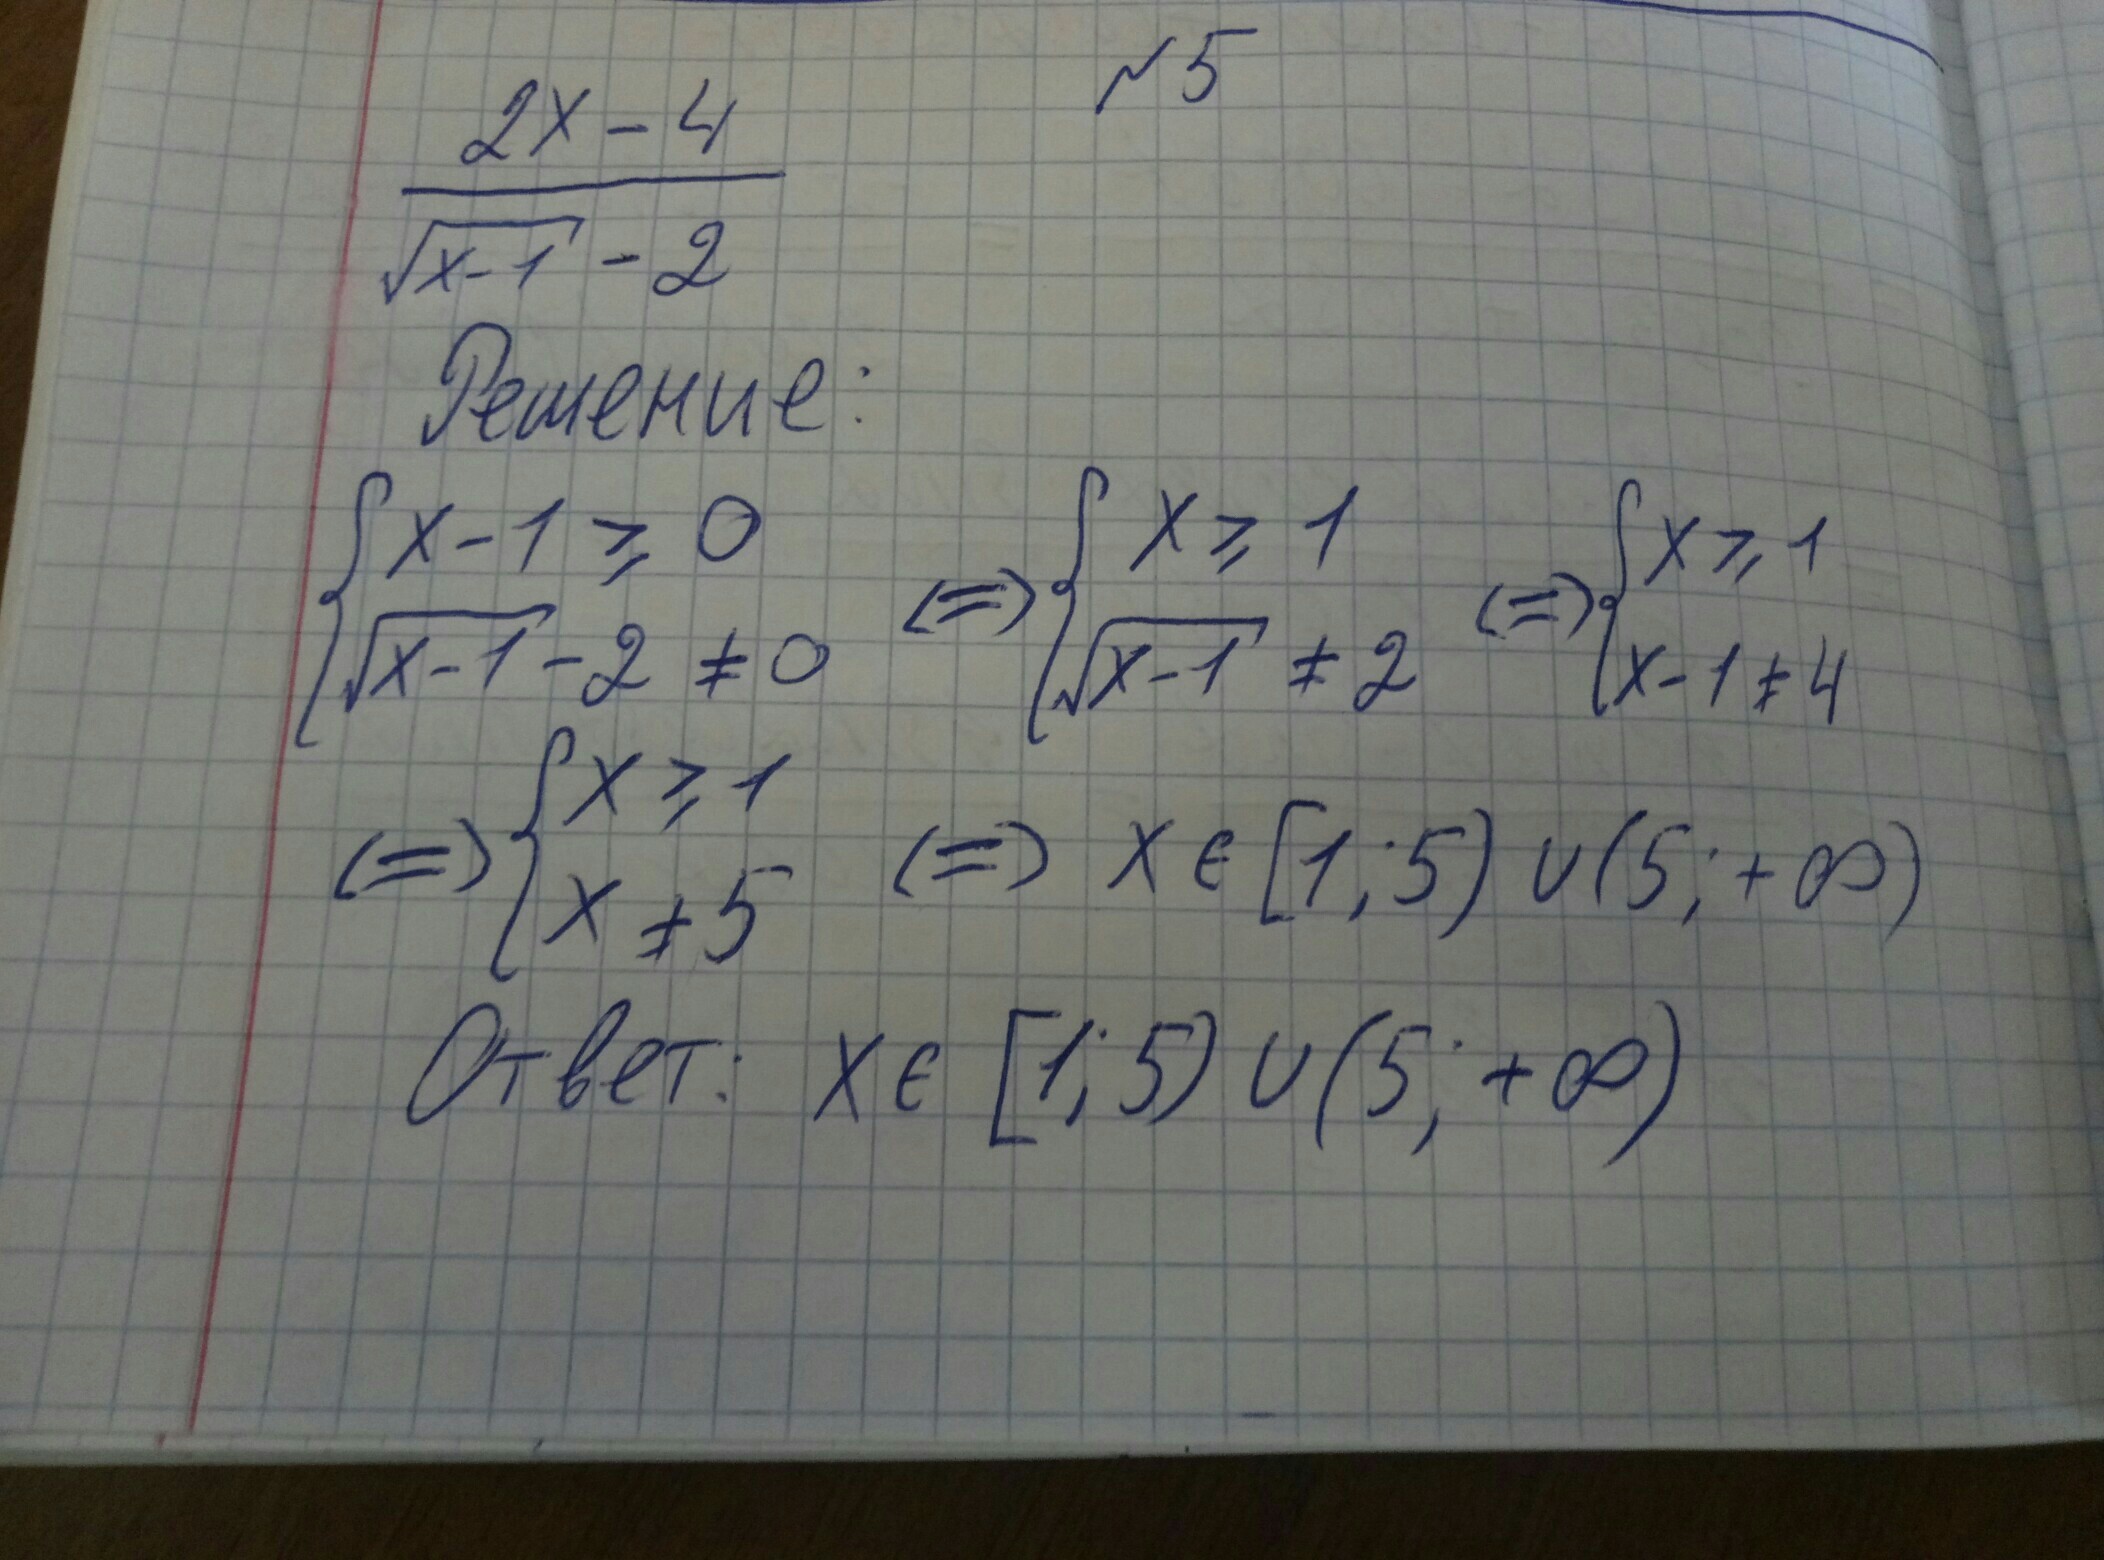 №5
2x - 4
√(x-1) - 2
Решение:
{ x-1 ⩾ 0 (=) { x ⩾ 1 (=) { x ⩾ 1
√(x-1) - 2 ≠ 0 √(x-1) ≠ 2 x-1 ≠ 4
(=) { x ⩾ 1
x ≠ 5 (=) x ∈ [1; 5) ∪ (5; +∞)
Ответ: x ∈ [1; 5) ∪ (5; +∞)